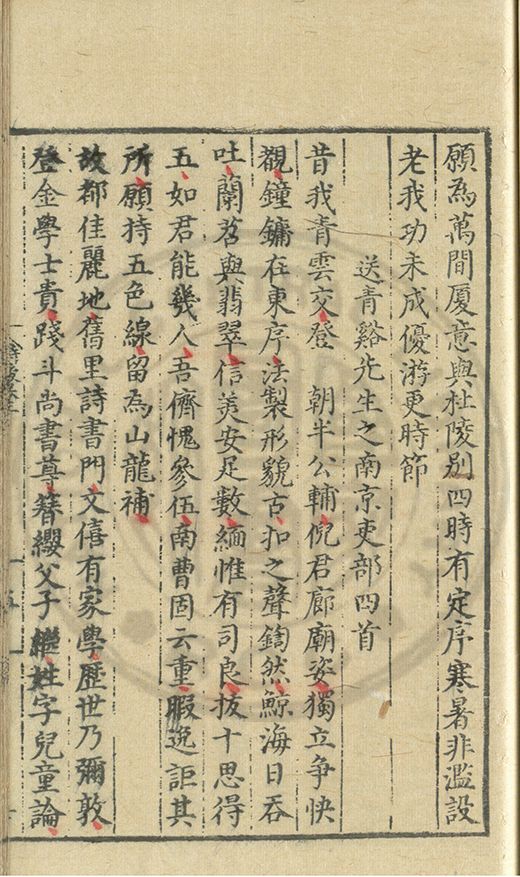 願為萬間厦意與杜陵别四時有定序寒暑非濫設
老我功未成優游更時節
送青谿先生之南京吏部四首
昔我青雲交登　朝半公輔倪君廊廟姿獨立争快
覩鐘鏞在東序法製形貌古扣之聲鍧然鯨海日吞
吐蘭苕與翡翠信美安足數緬惟有司良拔十思得
五如君能幾人吾儕愧參伍南曹固云重暇逸詎其
所願持五色線留為山龍補
故都佳麗地舊里詩書門文僖有家學歷世乃彌敦
登金學士貴踐斗尚書尊簪纓父子繼姓字兒童論